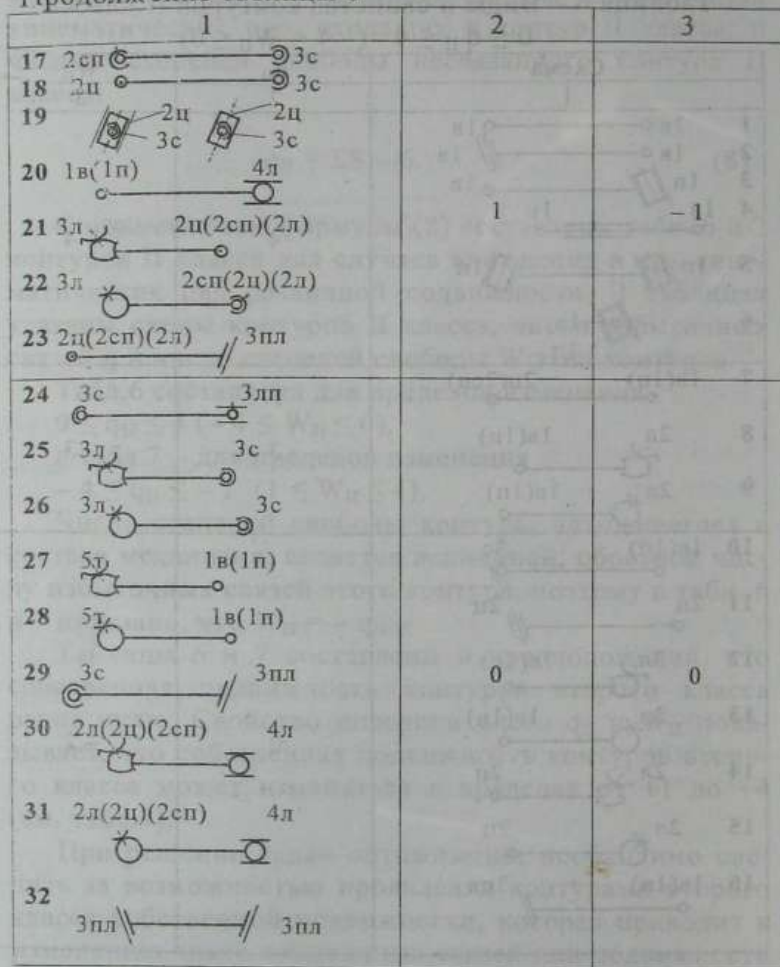 Продолжение таблицы
1 2 3
17 2сп 3с
18 2ц 3с
19 2ц 2ц
3с 3с
20 1в(1п) 4л
1 −1
21 3л 2ц(2сп)(2л)
22 3л 2сп(2ц)(2л)
23 2ц(2сп)(2л) 3пл
24 3с 3лп
25 3л 3с
26 3л 3с
27 5т 1в(1п)
28 5т 1в(1п)
29 3с 3пл
0 0
30 2л(2ц)(2сп) 4л
31 2л(2ц)(2сп) 4л
32
3пл 3пл